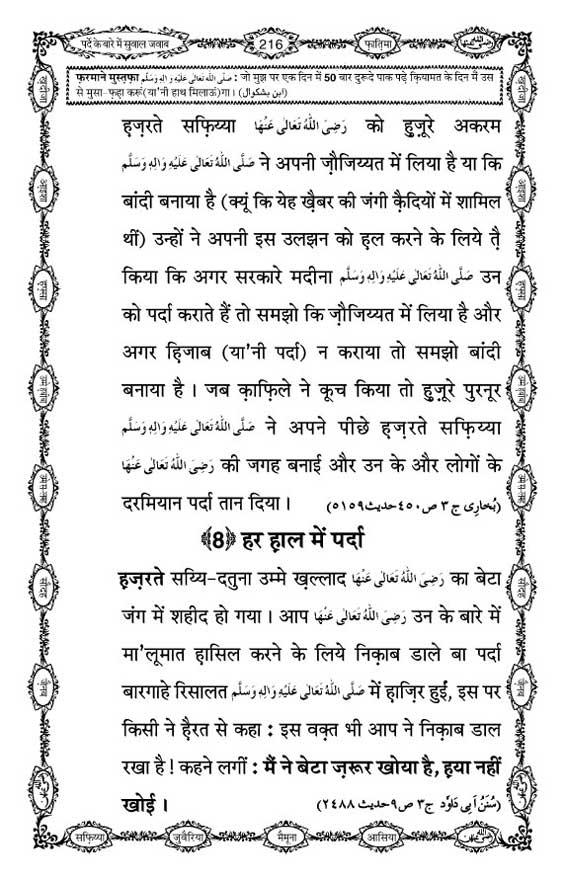 पर्दे के बारे में सुवाल जवाब
216
फ़ातिमा
फ़रमाने मुस्तफ़ा صَلَّى اللهُ تَعَالٰى عَلَيْهِ وَاٰلِهٖ وَسَلَّم : जो मुझ पर एक दिन में 50 बार दुरूदे पाक पढ़े क़ियामत के दिन मैं उस
से मुसा-फ़हा करूं(या'नी हाथ मिलाऊं)गा। (ابن بشکوال)
हज़रते सफ़िय्या رَضِىَ اللهُ تَعَالٰى عَنْهَا को हुज़ूरे अकरम
صَلَّى اللهُ تَعَالٰى عَلَيْهِ وَاٰلِهٖ وَسَلَّم ने अपनी ज़ौजिय्यत में लिया है या कि
बांदी बनाया है (क्यूं कि येह ख़ैबर की जंगी क़ैदियों में शामिल
थीं) उन्हों ने अपनी इस उलझन को हल करने के लिये तै
किया कि अगर सरकारे मदीना صَلَّى اللهُ تَعَالٰى عَلَيْهِ وَاٰلِهٖ وَسَلَّم उन
को पर्दा कराते हैं तो समझो कि ज़ौजिय्यत में लिया है और
अगर हिजाब (या'नी पर्दा) न कराया तो समझो बांदी
बनाया है । जब क़ाफ़िले ने कूच किया तो हुज़ूरे पुरनूर
صَلَّى اللهُ تَعَالٰى عَلَيْهِ وَاٰلِهٖ وَسَلَّم ने अपने पीछे हज़रते सफ़िय्या
رَضِىَ اللهُ تَعَالٰى عَنْهَا की जगह बनाई और उन के और लोगों के
दरमियान पर्दा तान दिया । (بُخاری ج ۳ ص ۴۵۰ حدیث ۵۱۵۹)
﴾8﴿ हर हाल में पर्दा
हज़रते सय्यि-दतुना उम्मे ख़ल्लाद رَضِىَ اللهُ تَعَالٰى عَنْهَا का बेटा
जंग में शहीद हो गया । आप رَضِىَ اللهُ تَعَالٰى عَنْهَا उन के बारे में
मा'लूमात हासिल करने के लिये निक़ाब डाले बा पर्दा
बारगाहे रिसालत صَلَّى اللهُ تَعَالٰى عَلَيْهِ وَاٰلِهٖ وَسَلَّم में हाज़िर हुईं, इस पर
किसी ने हैरत से कहा : इस वक़्त भी आप ने निक़ाब डाल
रखा है ! कहने लगीं : मैं ने बेटा ज़रूर खोया है, हया नहीं
खोई । (سُنَنُ اَبِی دَاوٗد ج ۳ ص ۹ حدیث ۲۴۸۸)
सफ़िय्या
जुवैरिया
मैमूना
आसिया